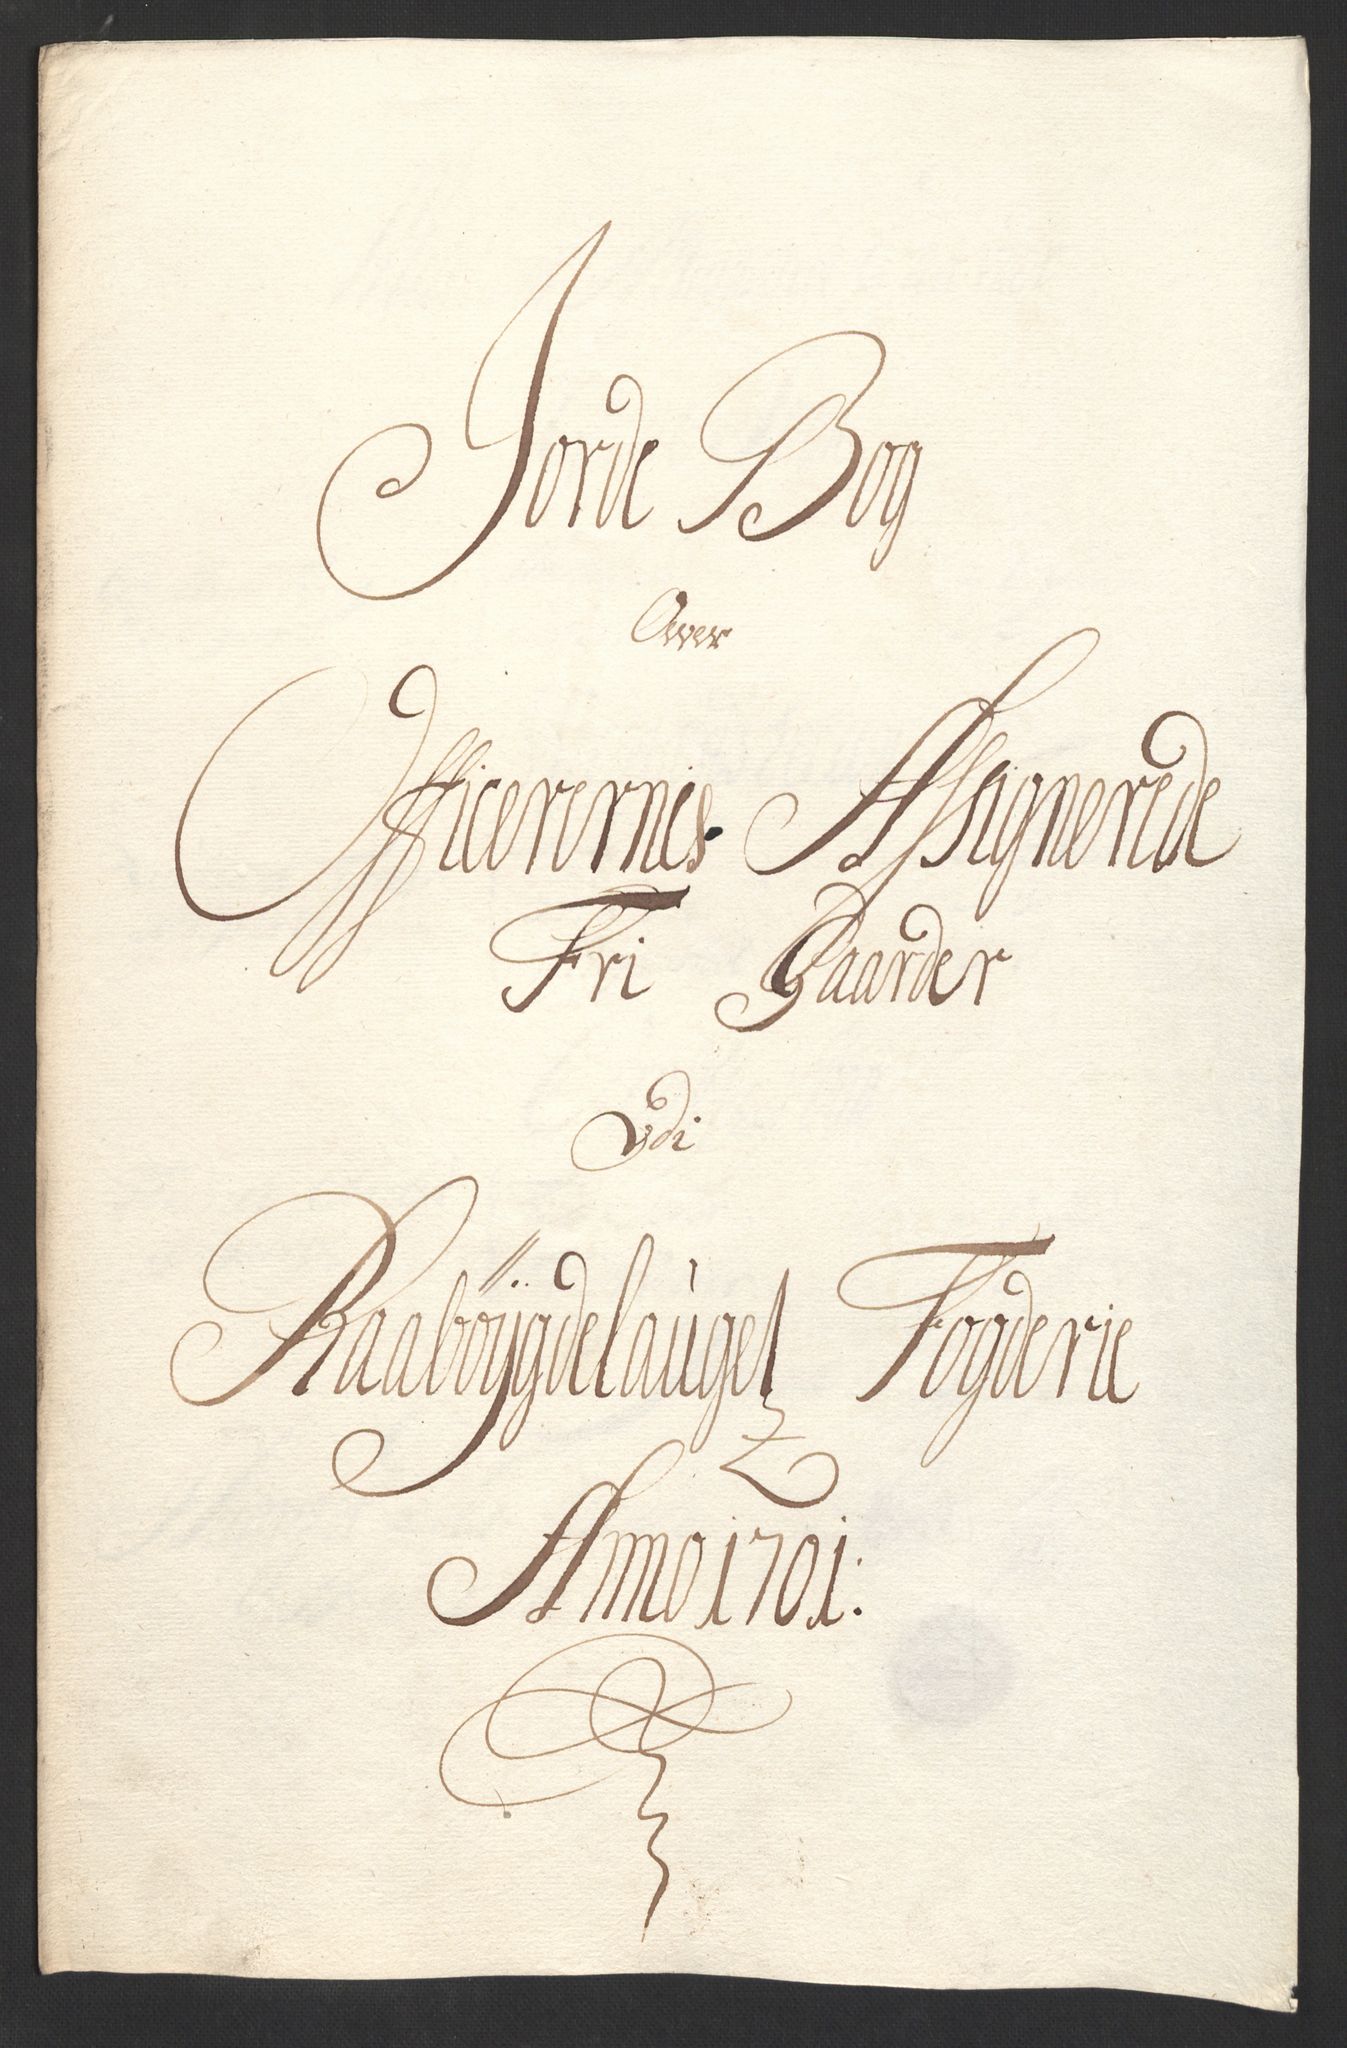 Jorde Bog
Over
Officerernes Assignerede
Fri Gaarder
Vdi
Raabÿgdelauget Fogderie
Anno 1701: